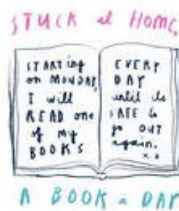 STUCK at HOME,
STARTing
on MONDAY,
I will
READ one
of my
BOOKS
EVERY
DAY
until its
SAFE to
go OUT
again.
x x
A BOOK a DAY